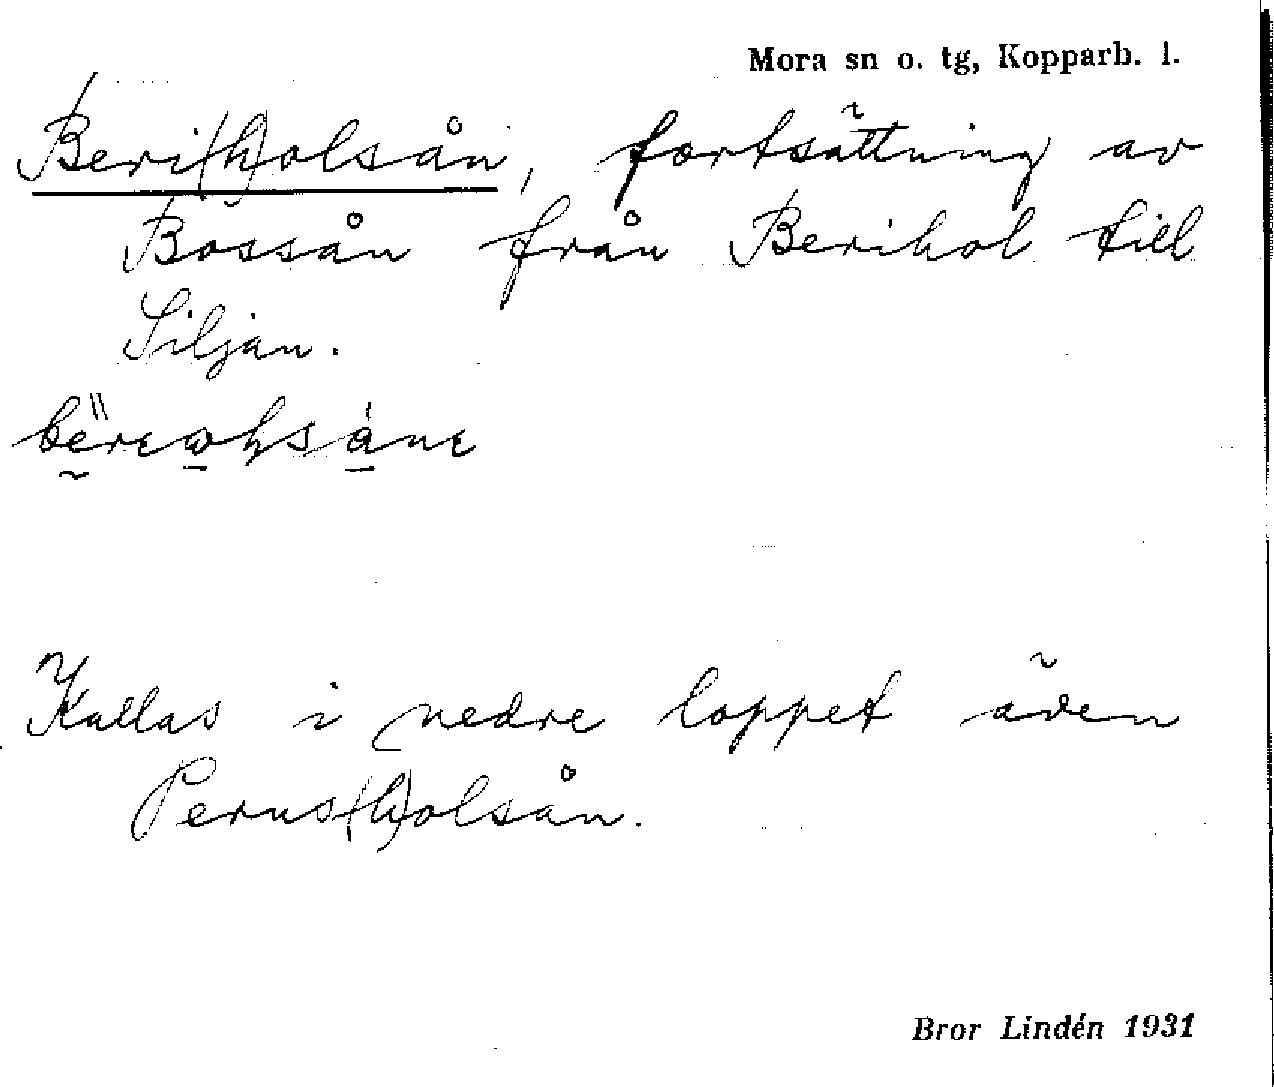 Mora sn o. tg, Kopparb. l.
Beri(h)olsån, fortsättning av
Bossån från Berihol till
Siljan.
Kallas i nedre loppet även
Perus(h)olsån.
Bror Lindén 1931